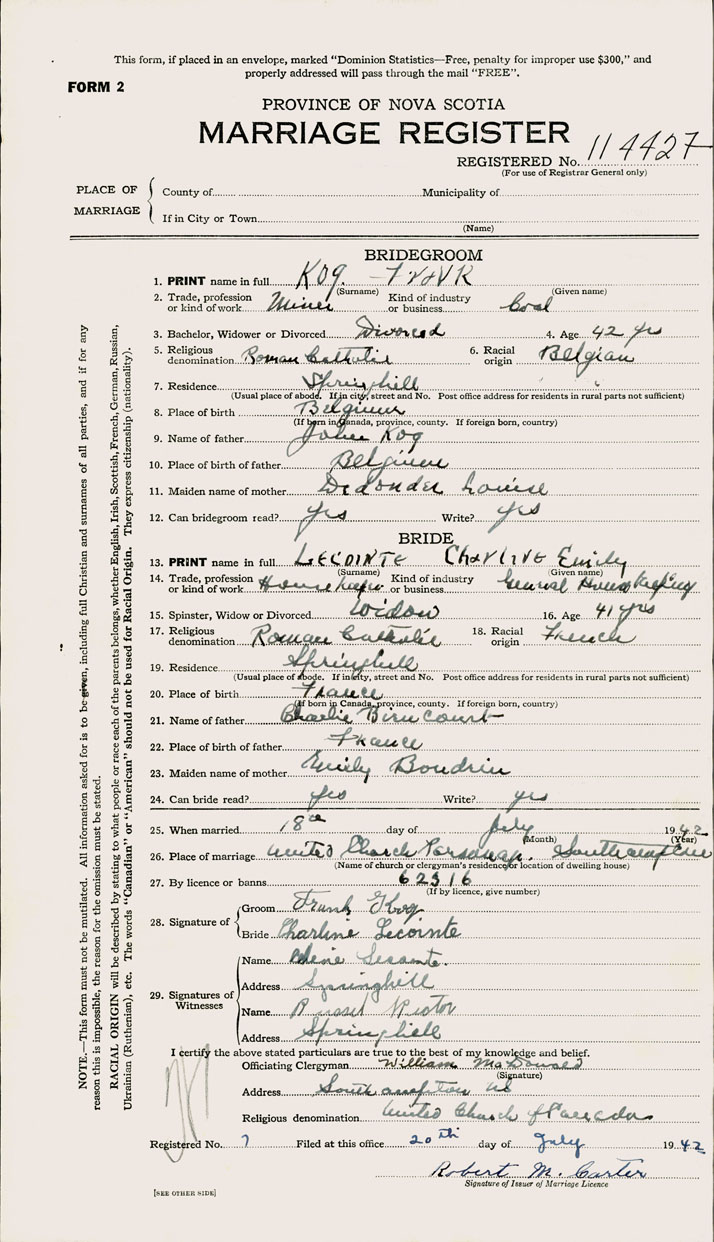 This form, if placed in an envelope, marked "Dominion Statistics—Free, penalty for improper use $300," and
properly addressed will pass through the mail "FREE".
FORM 2
PROVINCE OF NOVA SCOTIA
MARRIAGE REGISTER
REGISTERED No. 114427
(For use of Registrar General only)
PLACE OF MARRIAGE
County of Municipality of
If in City or Town
(Name)
BRIDEGROOM
1. PRINT name in full Kog Frank
(Surname) (Given name)
2. Trade, profession or kind of work Miner Kind of industry or business Coal
3. Bachelor, Widower or Divorced Divorced 4. Age 42 yrs
5. Religious denomination Roman Catholic 6. Racial origin Belgian
7. Residence Springhill
(Usual place of abode. If in city, street and No. Post office address for residents in rural parts not sufficient)
8. Place of birth Belgium
(If born in Canada, province, county. If foreign born, country)
9. Name of father John Kog
10. Place of birth of father Belgium
11. Maiden name of mother Dedonder Louise
12. Can bridegroom read? yes Write? yes
BRIDE
13. PRINT name in full LECOINTE Charline Emily
(Surname) (Given name)
14. Trade, profession or kind of work Housekeeper Kind of industry or business General Housekeeping
15. Spinster, Widow or Divorced Widow 16. Age 41 yrs
17. Religious denomination Roman Catholic 18. Racial origin French
19. Residence Springhill
(Usual place of abode. If in city, street and No. Post office address for residents in rural parts not sufficient)
20. Place of birth France
(If born in Canada, province, county. If foreign born, country)
21. Name of father Charlie
22. Place of birth of father France
23. Maiden name of mother Emily Boudrin
24. Can bride read? yes Write? yes
25. When married 18th day of July 1942
(Month) (Year)
26. Place of marriage United Church Parsonage, Southampton
(Name of church or clergyman's residence or location of dwelling house)
27. By licence or banns 62316
(If by licence, give number)
28. Signature of
Groom Frank Kog
Bride Charline Lecointe
29. Signatures of Witnesses
Name
Address Springhill
Name
Address Springhill
I certify the above stated particulars are true to the best of my knowledge and belief.
Officiating Clergyman William MacDonald
(Signature)
Address Southampton NS
Religious denomination United Church of Canada
Registered No. 7 Filed at this office 20th day of July 1942
Robert M. Carter
Signature of Issuer of Marriage Licence
[SEE OTHER SIDE]
NOTE.—This form must not be mutilated. All information asked for is to be given, including full Christian and surnames of all parties, and if for any
reason this is impossible, the reason for the omission must be stated.
RACIAL ORIGIN will be described by stating to what people or race each of the parents belongs, whether English, Irish, Scottish, French, German, Russian,
Ukrainian (Ruthenian), etc. The words "Canadian" or "American" should not be used for Racial Origin. They express citizenship (nationality).